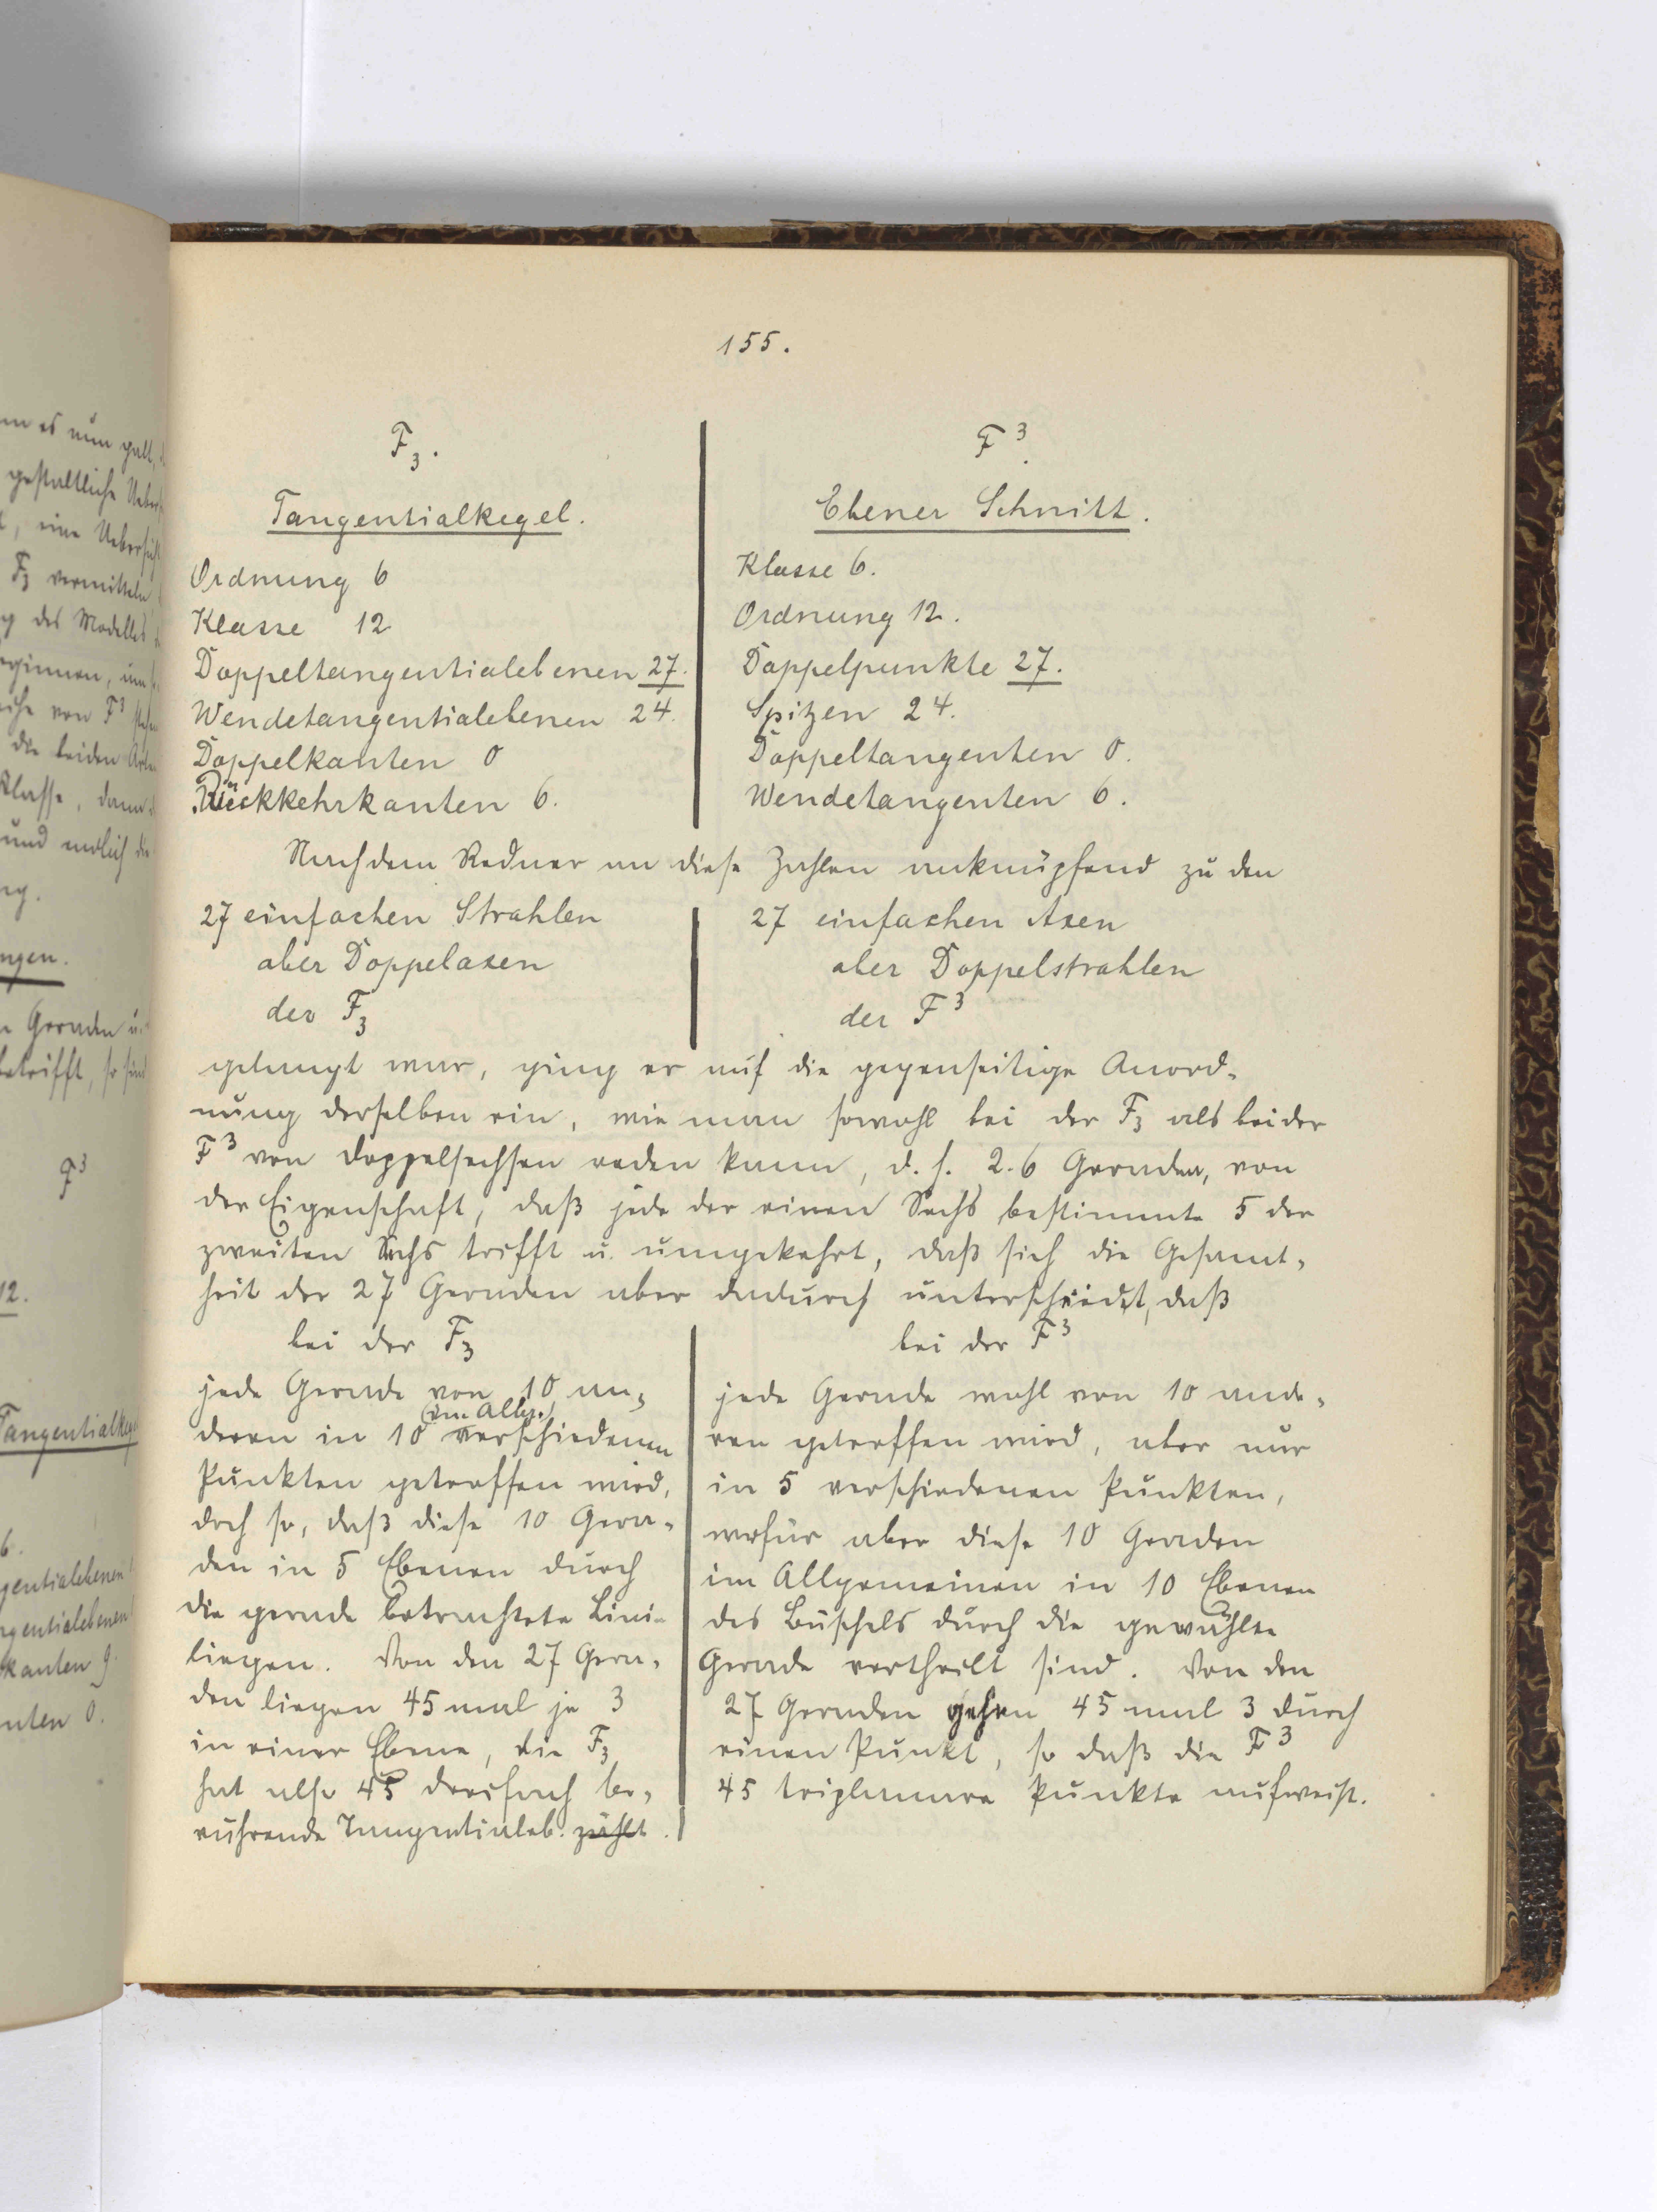 155.
F₃.
Tangentialkegel.
Ordnung 6
Klasse 12
Doppeltangentialebenen 27.
Wendetangentialebenen 24.
Doppelkanten 0
Rückkehrkanten 6.
F³.
Ebener Schnitt.
Klasse 6.
Ordnung 12.
Doppelpunkte 27.
Spitzen 24.
Doppeltangenten 0.
Wendetangenten 6.
Nachdem Redner an diese Zahlen anknüpfend zu den
27 einfachen Strahlen
aber Doppelaxen
der F₃
27 einfachen Axen
aber Doppelstrahlen
der F³
gelangt war, ging er auf die gegenseitige Anord-
nung derselben ein, wie man sowohl bei der F₃ als bei der
F³ von Doppelsechsen reden kann, d. h. 2.6 Geraden, von
der Eigenschaft, daß jede der einen Sechs bestimmte 5 der
zweiten Sechs trifft u. umgekehrt, daß sich die Gesamt-
heit der 27 Geraden aber dadurch unterscheidet, daß
bei der F₃
jede Gerade von 10 an-
deren in 10 (im Allg.) verschiedenen
Punkten getroffen wird,
doch so, daß diese 10 Gera-
den in 5 Ebenen durch
die gerade betrachtete Linie
liegen. Von den 27 Gera-
den liegen 45 mal je 3
in einer Ebene, die F₃
hat also 45 dreifach be-
rührende Tangentialeb. zählt.
bei der F³
jede Gerade wohl von 10 ande-
ren getroffen wird, aber nur
in 5 verschiedenen Punkten,
wofür aber diese 10 Geraden
im Allgemeinen in 10 Ebenen
des Büschels durch die gewählte
Gerade vertheilt sind. Von den
27 Geraden gehen 45 mal 3 durch
einen Punkt, so daß die F³
45 triplanare Punkte aufweist.
en es nun galt,
gestaltliche Ueber
eine Uebersicht
F₃ vermitteln
des Modelles
beginnen, um
von F³
die beiden
Klasse, dann
und endlich die
ngen.
Geraden u.
betrifft, so sind
F³
12.
Tangentialkeg
6.
gentialebenen
ngentialebenen
kanten 9.
nten 0.